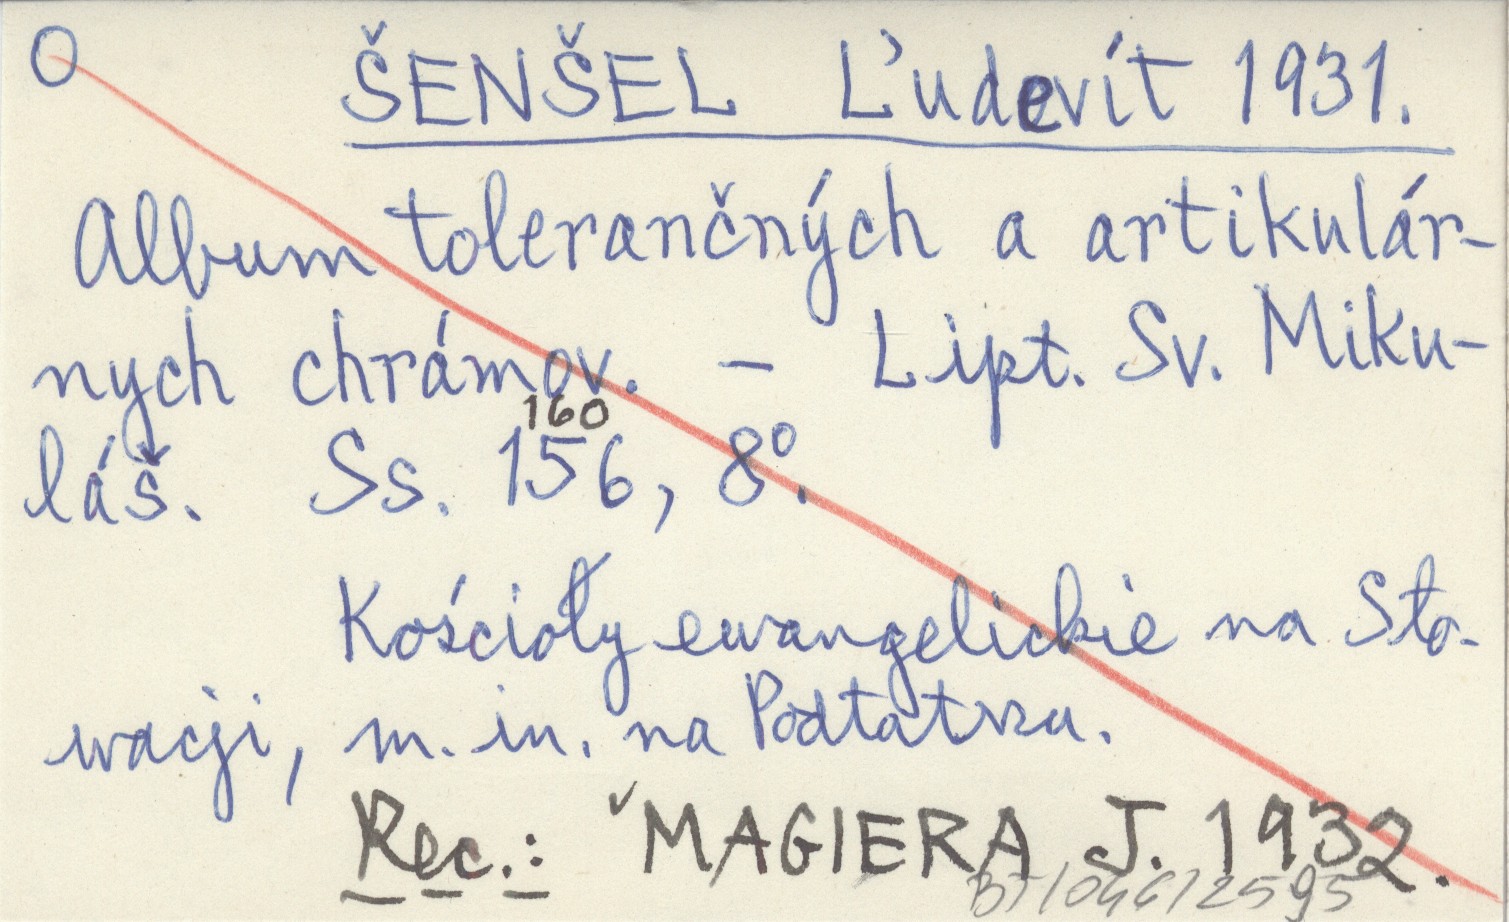 O ŠENŠEL Ľudevít 1931.
Album tolerančných a artikulár-
nych chrámov. – Lipt. Sv. Miku-
160
láš. Ss. 156, 8°.
Kościoły ewangelickie na Sło-
wacji, m. in. na Podtatrzu.
Rec.: ˇMAGIERA J. 1932.
BT/046/2595